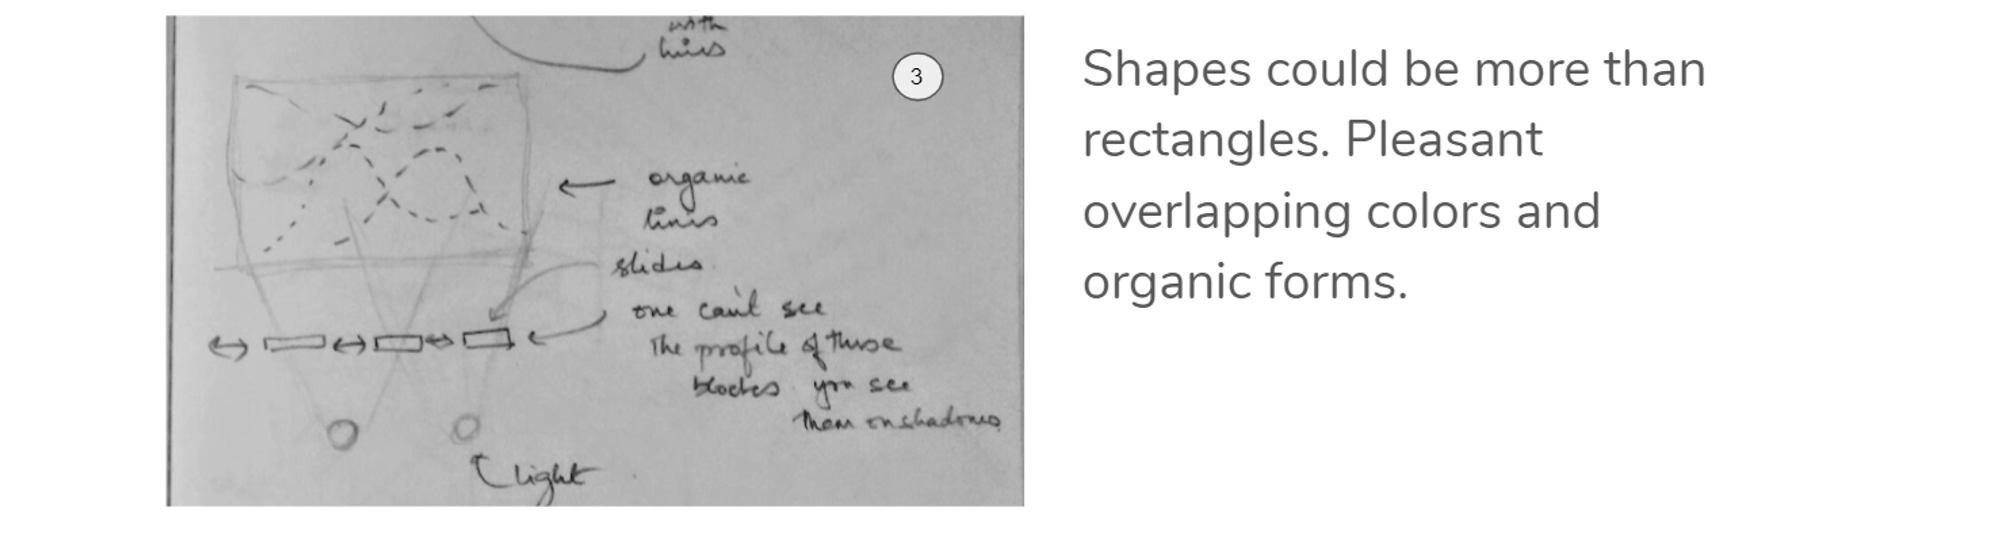 with
lines
3
organic
lines
slides
one can't see
The profile of these
blocks you see
them on shadows
light
Shapes could be more than
rectangles. Pleasant
overlapping colors and
organic forms.